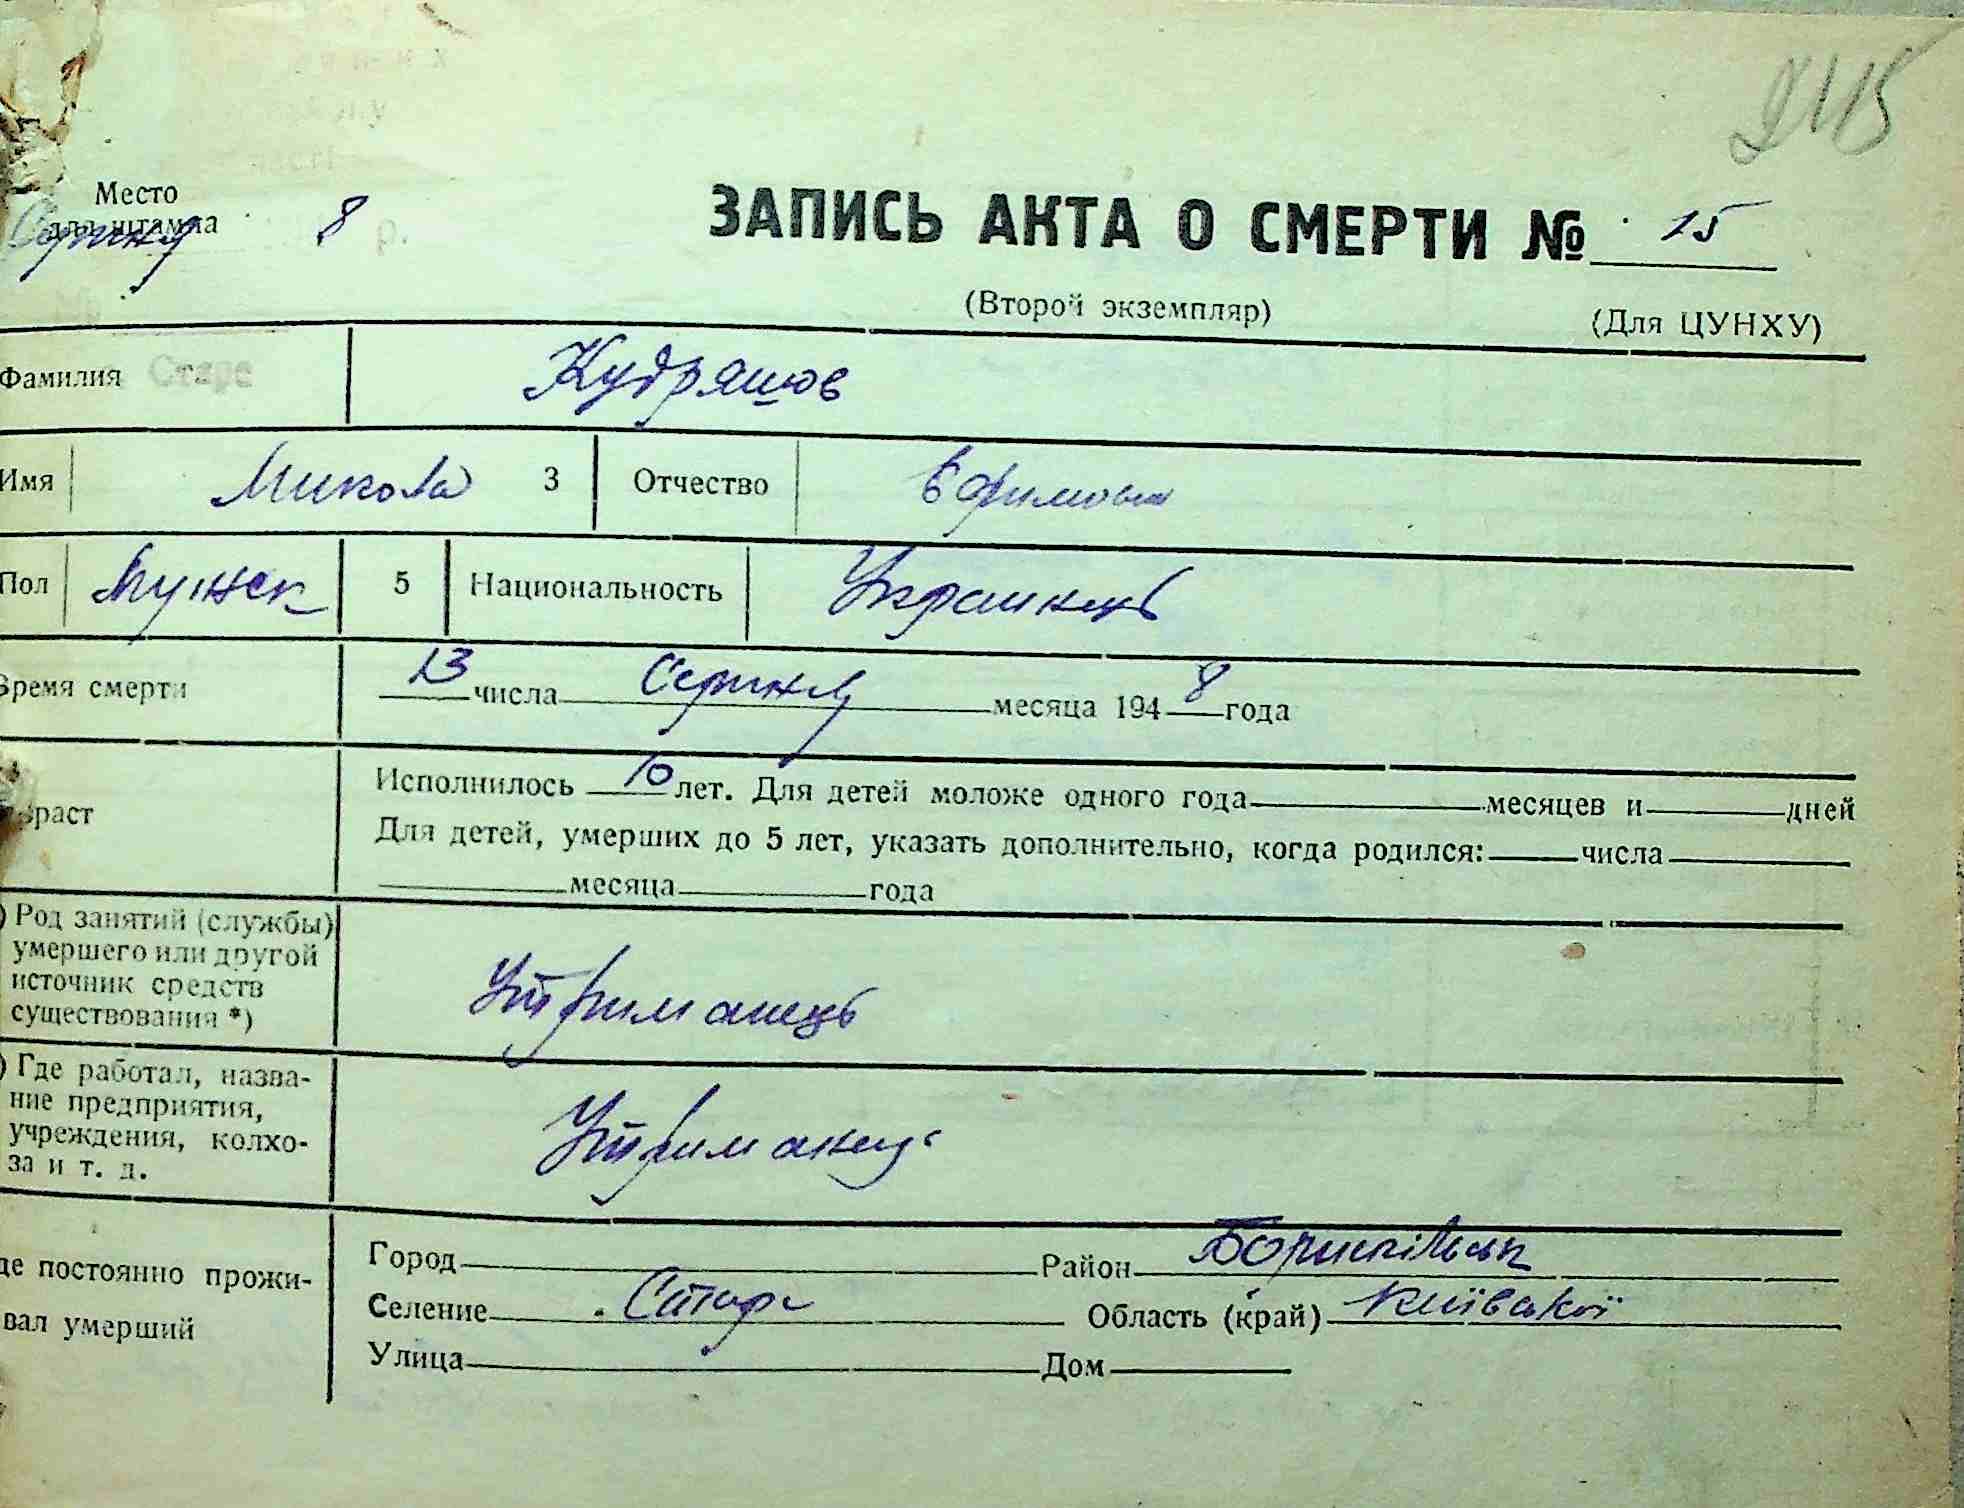 245
Место
для штампа
Серпня 8 р.
ЗАПИСЬ АКТА О СМЕРТИ № 15
(Второй экземпляр)
(Для ЦУНХУ)
Фамилия Старе Кудряшов
Имя Микола 3 Отчество Ефимович
Пол Мужск 5 Национальность Украинець
Время смерти 13 числа Серпня месяца 1948 года
Исполнилось 10 лет. Для детей моложе одного года месяцев и дней
раст
Для детей, умерших до 5 лет, указать дополнительно, когда родился: числа
месяца года
) Род занятий (службы)
умершего или другой
источник средств
существования *)
Утриманець
) Где работал, назва-
ние предприятия,
учреждения, колхо-
за и т. д.
Утриманець
де постоянно прожи-
вал умерший
Город Район Бориспільськ
Селение Старе Область (край) Київської
Улица Дом